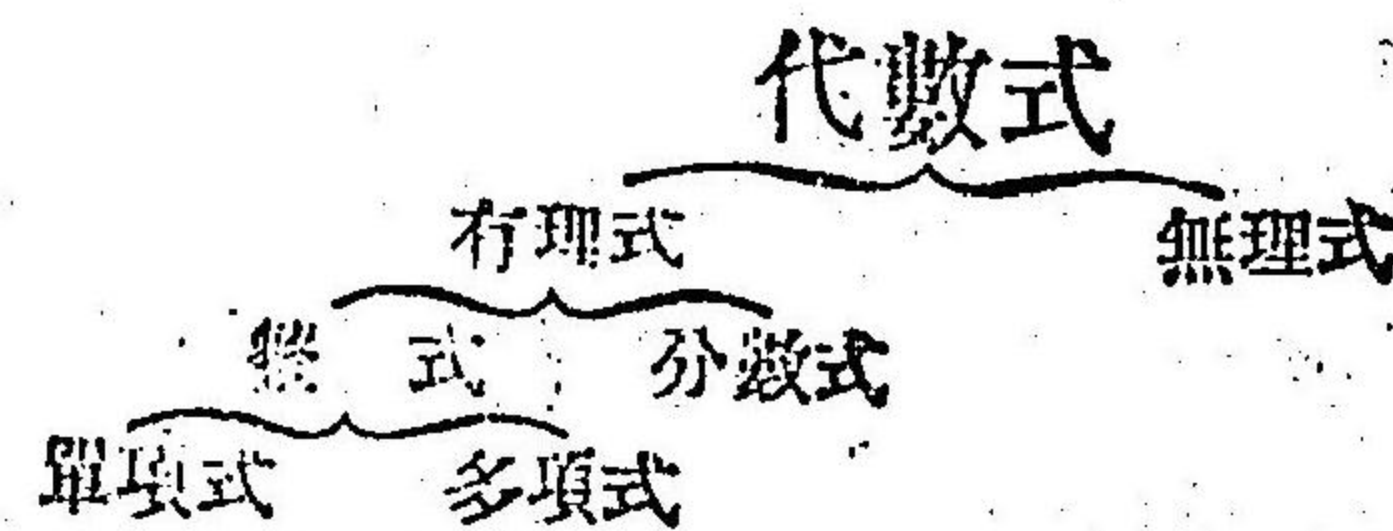 代數式
有理式 無理式
整式 分數式
單項式 多項式